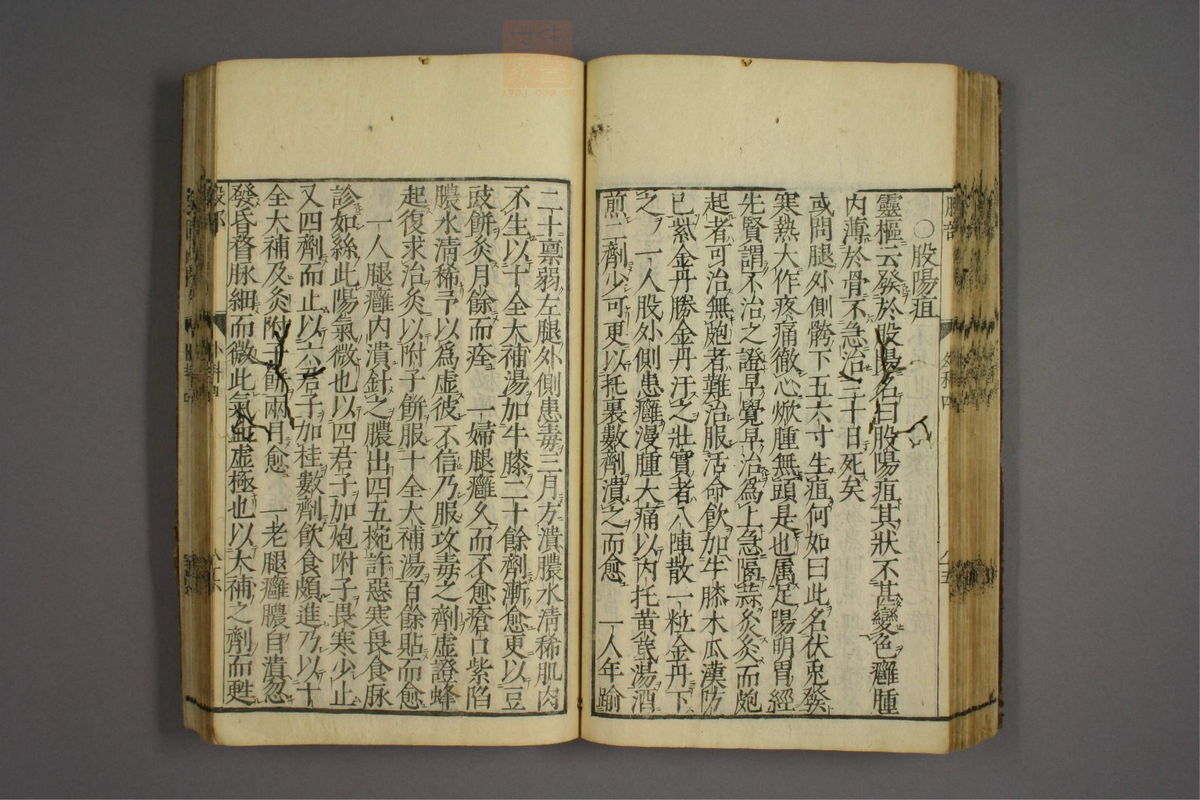 ○股陽疽
靈樞云發於股陽名曰股陽疽其狀不甚變色癰腫
內薄於骨不急治三十日死矣
或問腿外側髀下五六寸生疽何如曰此名伏兎發
寒熱大作疼痛徹心焮腫無頭是也屬足陽明胃經
先賢謂不治之證早覺早治爲上急隔蒜灸灸而皰
起者可治無皰者難治服活命飲加牛膝木瓜漢防
已紫金丹勝金丹汗之壯實者八陣散一粒金丹下
之 一人股外側患癰漫腫大痛以內托黃芪湯酒
煎二劑少可更以托裏數劑潰之而愈 一人年踰
二十禀弱左腿外側患毒三月方潰膿水清稀肌肉
不生以十全大補湯加牛膝二十餘劑漸愈更以豆
豉餅灸月餘而痊 一婦腿癰久而不愈瘡口紫陷
膿水清稀予以爲虛彼不信乃服攻毒之劑虛證蜂
起復求治灸以附子餅服十全大補湯百餘貼而愈
一人腿癰內潰針之膿出四五椀許惡寒畏食脉
診如絲此陽氣微也以四君子加炮附子畏寒少止
又四劑而止以六君子加桂數劑飲食頗進乃以十
全大補及灸附子餅兩月愈 一老腿癰膿自潰忽
發昏瞀脉細而微此氣血虛極也以大補之劑而甦